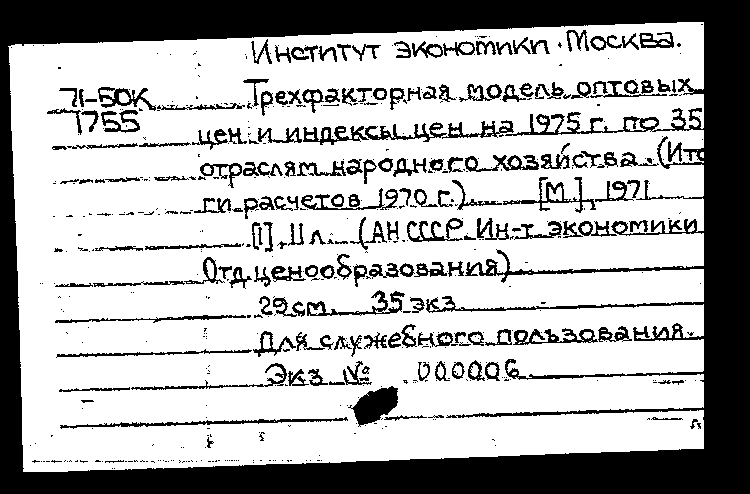 Институт экономики. Москва.
71-БОК Трехфакторная модель оптовых
1755 цен и индексы цен на 1975 г. по 35
отраслям народного хозяйства. (Ито
ги расчетов 1970 г.) [М.], 1971
[1], 11 л. (АН СССР. Ин-т экономики
Отд. ценообразования)
29 см. 35 экз.
Для служебного пользования.
Экз. № 000006